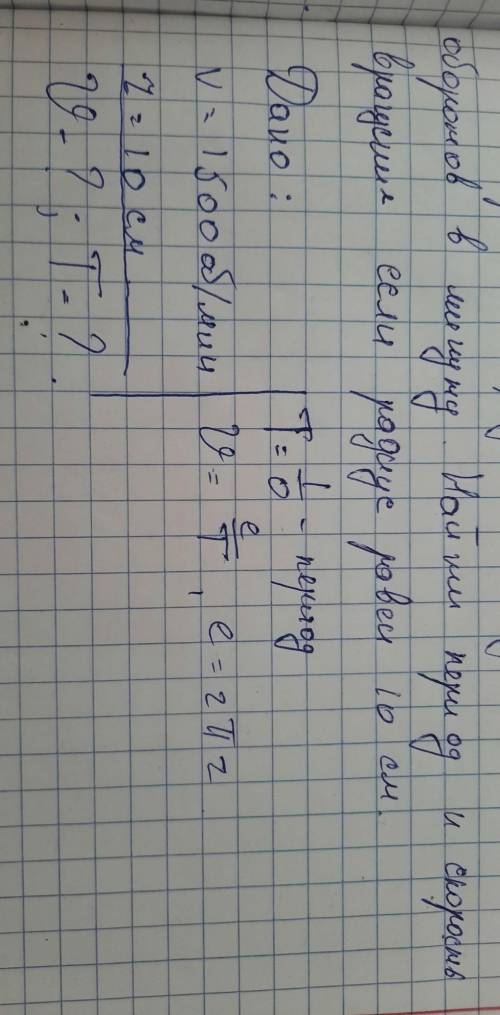 оборотов в минуту. Найти период и скорость
вращения если радиус равен 10 см.
Дано:
ν = 1500 об/мин
r = 10 см
υ - ? ; T = ?
T = 1/υ - период
υ = e/T , e = 2πr